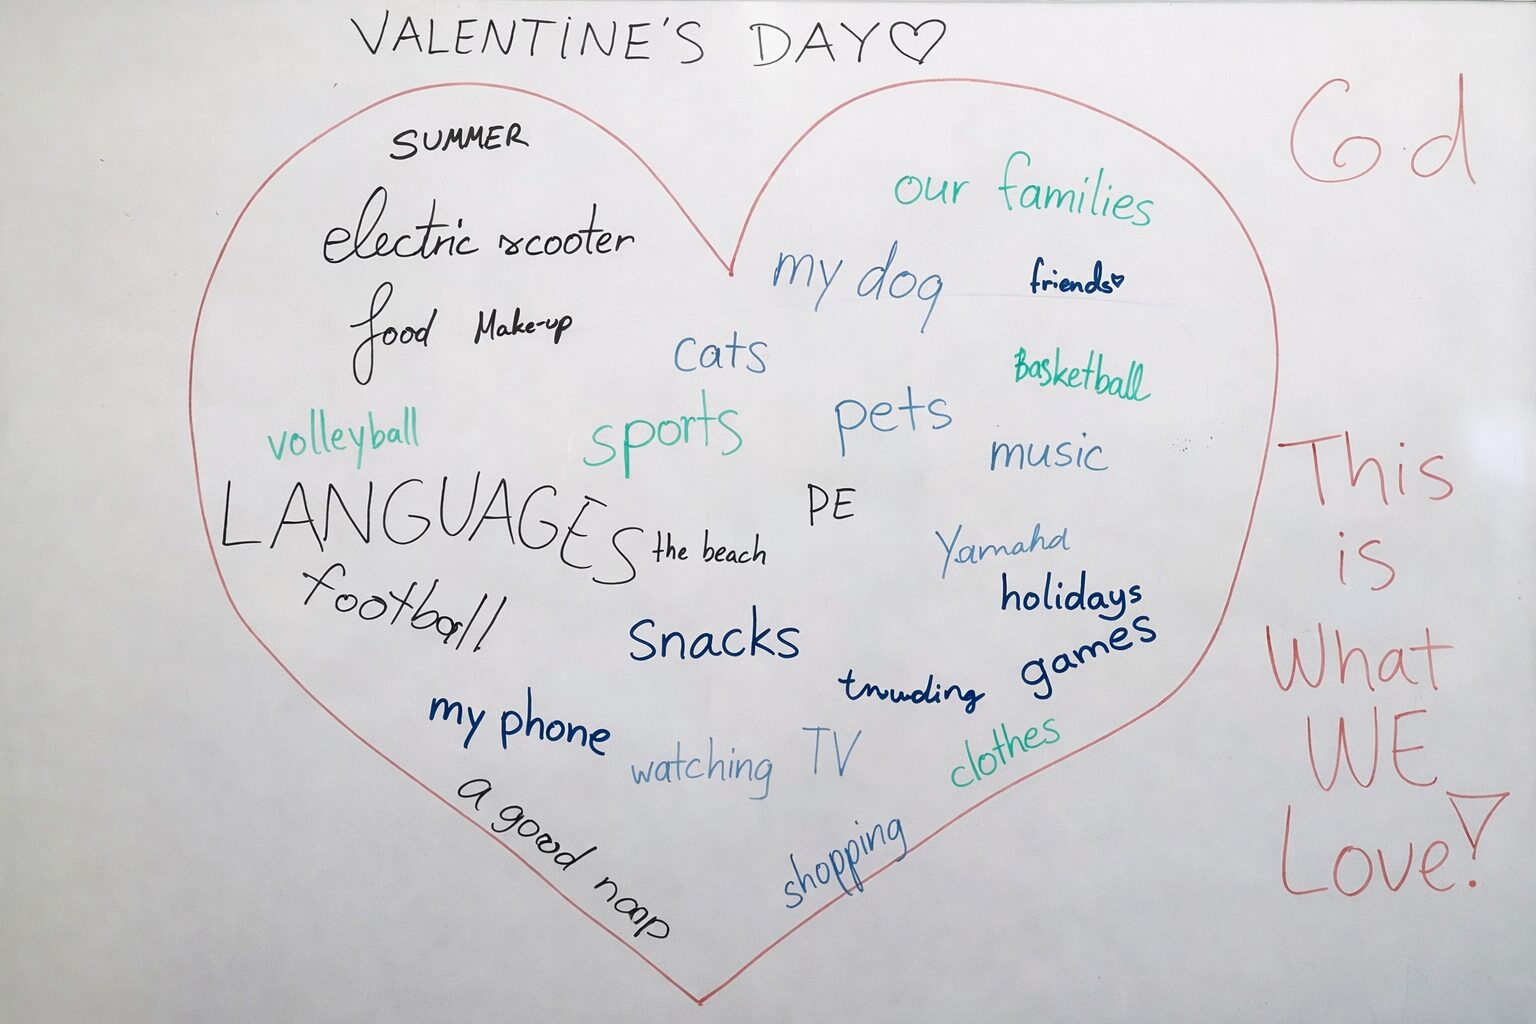 VALENTINE'S DAY♡
SUMMER
electric scooter
food
Make-up
our families
my dog
friends♡
cats
Basketball
volleyball
sports
pets
music
LANGUAGES
the beach
PE
Yamaha
football
holidays
Snacks
games
my phone
watching TV
clothes
a good nap
shopping
6.d
This
is
What
WE
Love!